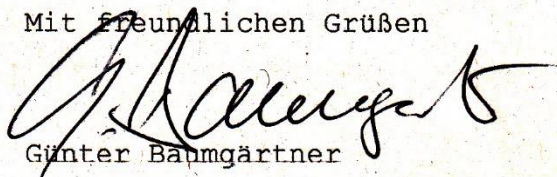 Mit freundlichen Grüßen
G. Baumgart
Günter Baumgärtner